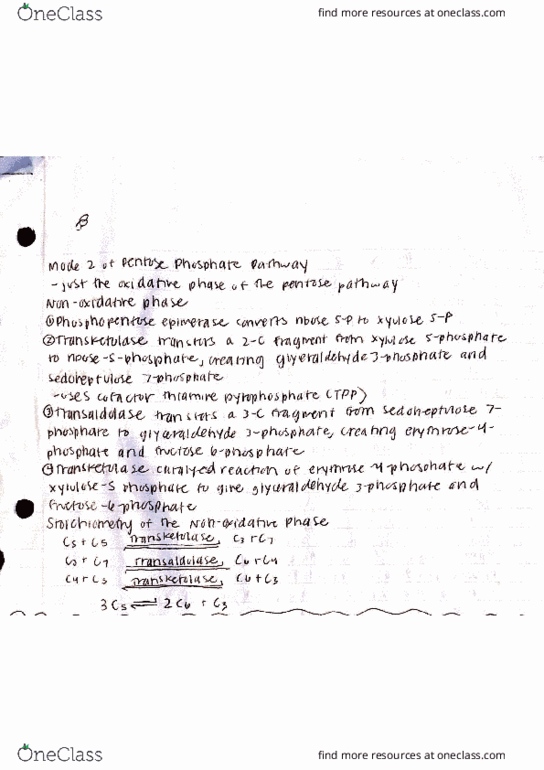 OneClass
find more resources at oneclass.com
Mode 2 of Pentose Phosphate Pathway
- just the oxidative phase of the pentose pathway
Non-oxidative phase
① Phosphopentose epimerase converts ribose 5-P to xylulose 5-P
② Transketolase transfers a 2-C fragment from xylulose 5-phosphate
to ribose-5-phosphate, creating glyceraldehyde 3-phosphate and
sedoheptulose 7-phosphate
- uses cofactor thiamine pyrophosphate (TPP)
③ Transaldolase transfers a 3-C fragment from sedoheptulose 7-
phosphate to glyceraldehyde 3-phosphate, creating erythrose-4-
phosphate and fructose 6-phosphate
④ Transketolase catalyzed reaction of erythrose 4-phosphate w/
xylulose-5 phosphate to give glyceraldehyde 3-phosphate and
fructose-6-phosphate
Stoichiometry of the Non-oxidative phase
C5 + C5 Transketolase C3 + C7
C3 + C7 Transaldolase C6 + C4
C4 + C5 Transketolase C6 + C3
3C5 ⇌ 2C6 + C3
OneClass
find more resources at oneclass.com